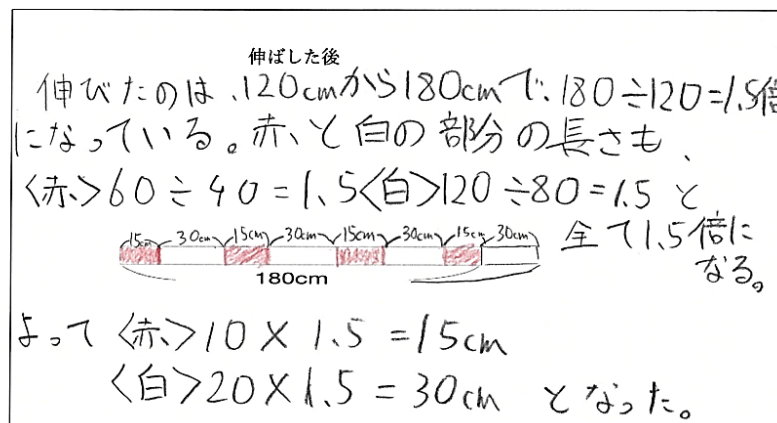 伸ばした後
伸びたのは、120cmから180cmで、180÷120=1.5倍
になっている。赤いと白の部分の長さも、
〈赤〉60÷40=1.5〈白〉120÷80=1.5 と
全て1.5倍に
なる。
15cm 30cm 15cm 30cm 15cm 30cm 15cm 30cm
180cm
よって〈赤〉10×1.5=15cm
〈白〉20×1.5=30cm となった。